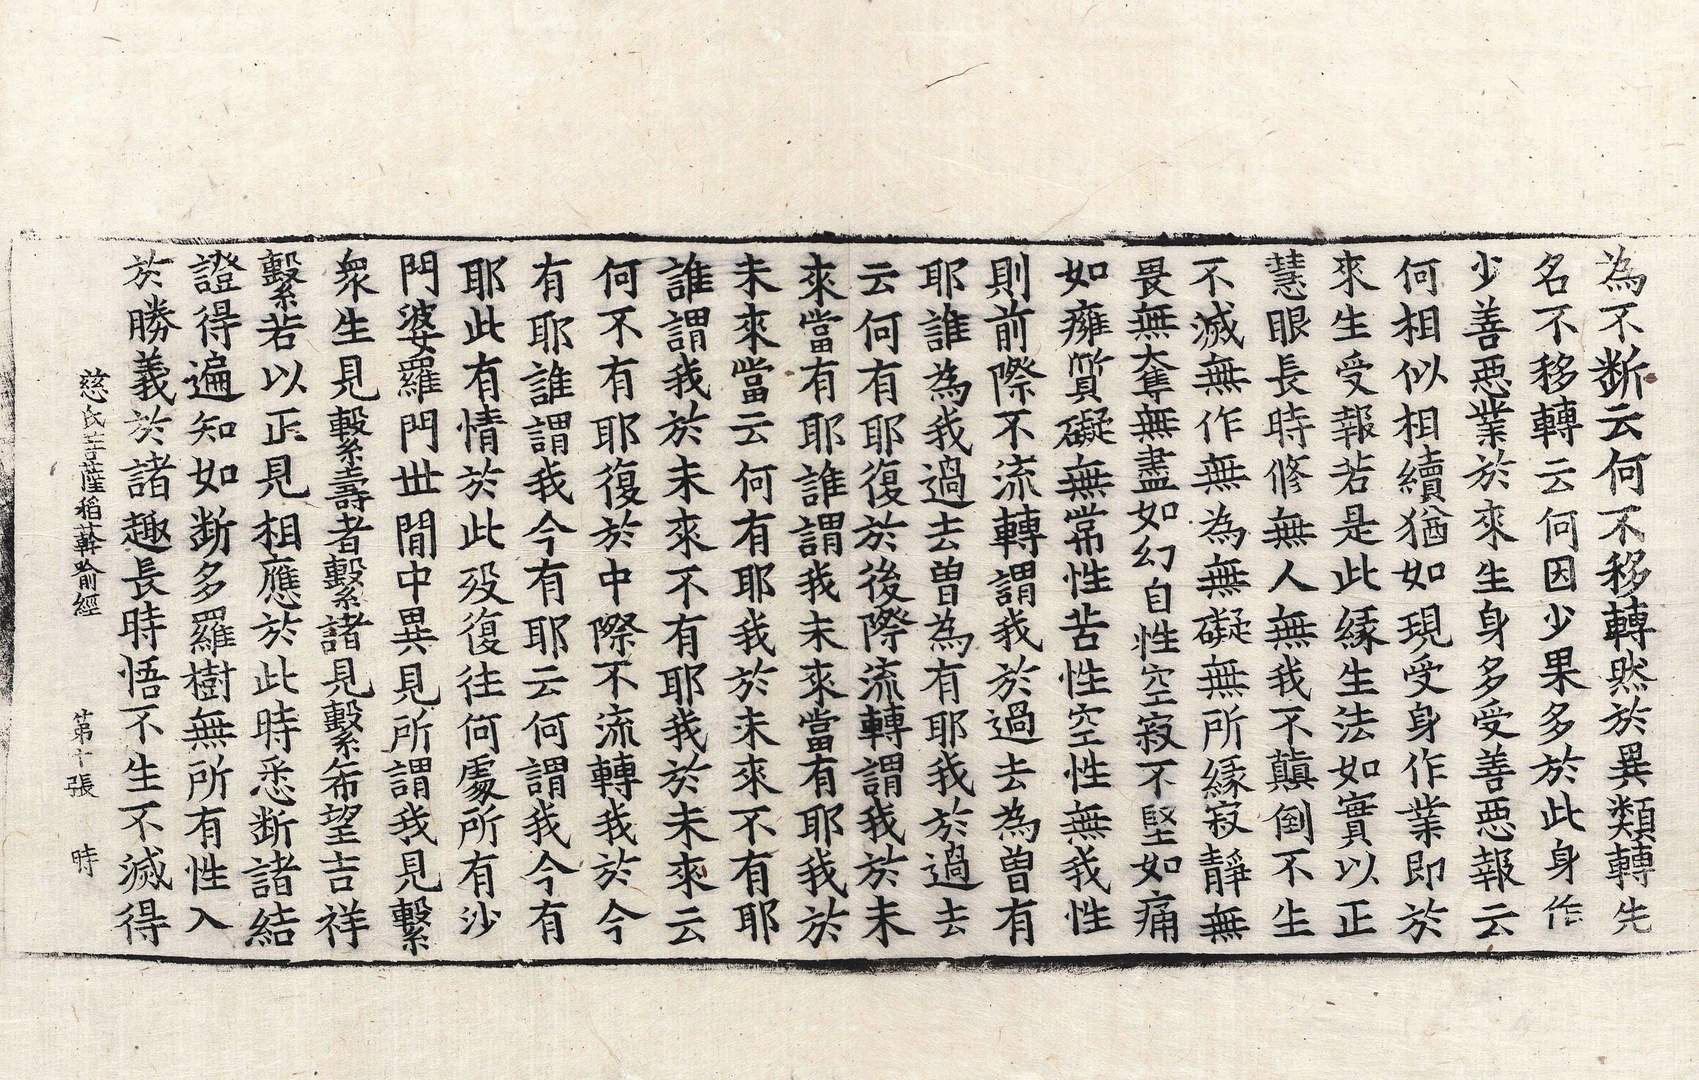 為不断云何不移轉然於異類轉先
名不移轉云何因少果多於此身作
少善惡業於來生身多受善惡報云
何相似相續猶如現受身作業即於
來生受報若是此緣生法如實以正
慧眼長時修無人無我不顛倒不生
不滅無作無為無礙無所緣寂靜無
畏無奪無盡如幻自性空寂不堅如痛
如癰質礙無常性苦性空性無我性
則前際不流轉謂我於過去為曾有
耶誰為我過去曾為有耶我於過去
云何有耶復於後際流轉謂我於未
來當有耶誰謂我未來當有耶我於
未來當云何有耶我於未來不有耶
誰謂我於未來不有耶我於未來云
何不有耶復於中際不流轉我於今
有耶誰謂我今有耶云何謂我今有
耶此有情於此歿復往何處所有沙
門婆羅門世間中異見所謂我見繫
衆生見繫壽者繫諸見繫希望吉祥
繫若以正見相應於此時悉断諸結
證得遍知如断多羅樹無所有性入
於勝義於諸趣長時悟不生不滅得
慈氏菩薩稻䕀喻經 第十張 時